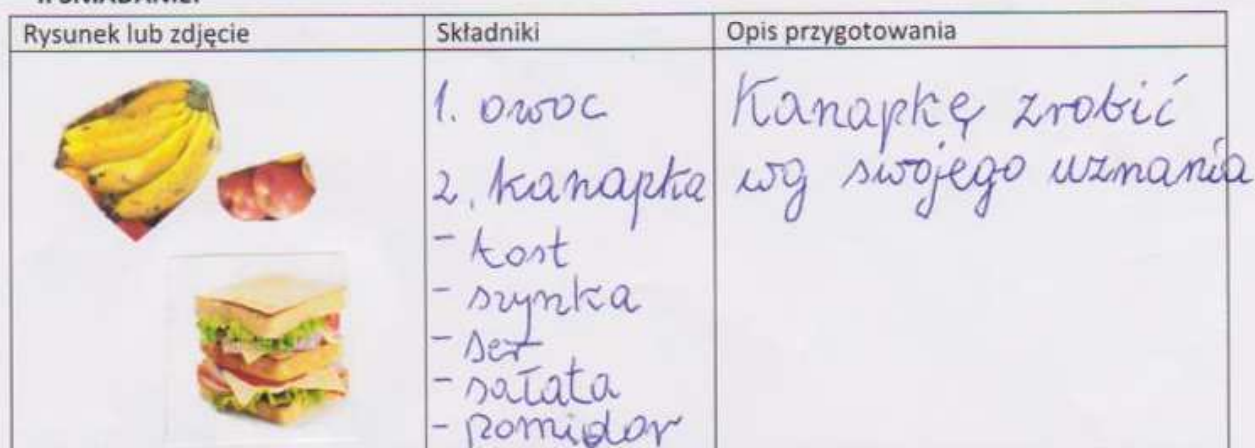 II ŚNIADANIE:
Rysunek lub zdjęcie
Składniki
Opis przygotowania
1. owoc
2. kanapka
- tost
- szynka
- ser
- sałata
- pomidor
Kanapkę zrobić
wg swojego uznania